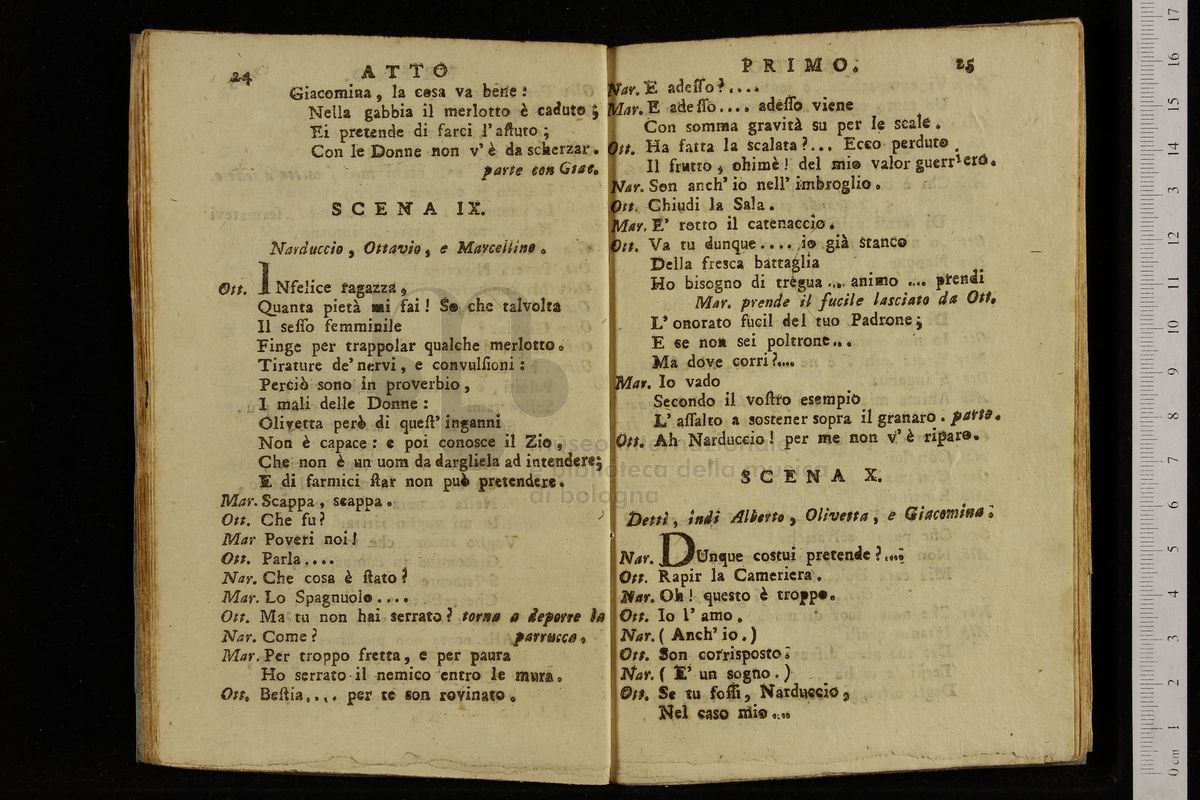 24 ATTO
Giacomina, la cosa va bene:
Nella gabbia il merlotto è caduto;
Ei pretende di farci l'aſtuto;
Con le Donne non v'è da scherzar.
parte con Giac.
SCENA IX.
Narduccio, Ottavio, e Marcellino.
Ott. INfelice ragazza,
Quanta pietà mi fai! So che talvolta
Il seſſo femminile
Finge per trappolar qualche merlotto.
Tirature de' nervi, e convulſioni:
Perciò sono in proverbio,
I mali delle Donne:
Olivetta però di queſt' inganni
Non è capace: e poi conosce il Zio,
Che non è un uom da dargliela ad intendere;
E di farmici ſtar non può pretendere.
Mar. Scappa, scappa.
Ott. Che fu?
Mar Poveri noi!
Ott. Parla....
Nar. Che cosa è ſtato?
Mar. Lo Spagnuolo....
Ott. Ma tu non hai serrato? torna a deporre la
Nar. Come? parrucca.
Mar. Per troppo fretta, e per paura
Ho serrato il nemico entro le mura.
Ott. Beſtia.... per te son rovinato.
PRIMO. 25
Nar. E adeſſo?....
Mar. E adeſſo.... adeſſo viene
Con somma gravità su per le scale.
Ott. Ha fatta la scalata?... Ecco perduto
Il frutto, ohimè! del mio valor guerriero.
Nar. Son anch' io nell' imbroglio.
Ott. Chiudi la Sala.
Mar. E' rotto il catenaccio.
Ott. Va tu dunque.... io già ſtanco
Della fresca battaglia
Ho bisogno di tregua.... animo.... prendi
Mar. prende il fucile lasciato da Ott.
L' onorato fucil del tuo Padrone;
E se non sei poltrone...
Ma dove corri?....
Mar. Io vado
Secondo il voſtro esempio
L' aſſalto a sostener sopra il granaro. parte.
Ott. Ah Narduccio! per me non v'è riparo.
SCENA X.
Detti, indi Alberto, Olivetta, e Giacomina.
Nar. DUnque costui pretende?....
Ott. Rapir la Cameriera.
Nar. Oh! questo è troppo.
Ott. Io l' amo.
Nar. (Anch' io.)
Ott. Son corrisposto.
Nar. (E' un sogno.)
Ott. Se tu foſſi, Narduccio,
Nel caso mio....
museo internazionale
e biblioteca della musica
di bologna